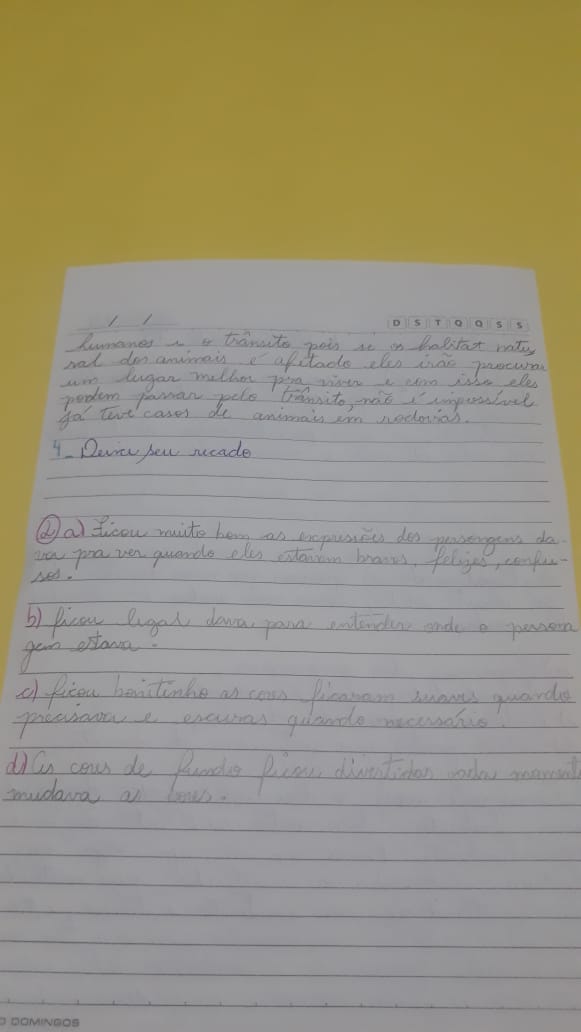 / /
D S T Q Q S S
humanos e o trânsito pois se os habitat natu
ral dos animais é afetado eles irão procurar
um lugar melhor pra viver e com isso eles
podem passar pelo trânsito, não é impossível
já teve casos de animais em rodovias.
4- Deixe seu recado
2 a) Ficou muito bom as expressões dos persongens da-
va pra ver quando eles estavam bravos, felizes, confu-
sos.
b) ficou legal dava para entender onde o persona
gem estava.
c) ficou bonitinho as cores ficaram suaves quando
precisava e escuras quando necessário.
d) As cores de fundo ficou divertidas cada moment
mudava as cores.
O DOMINGOS